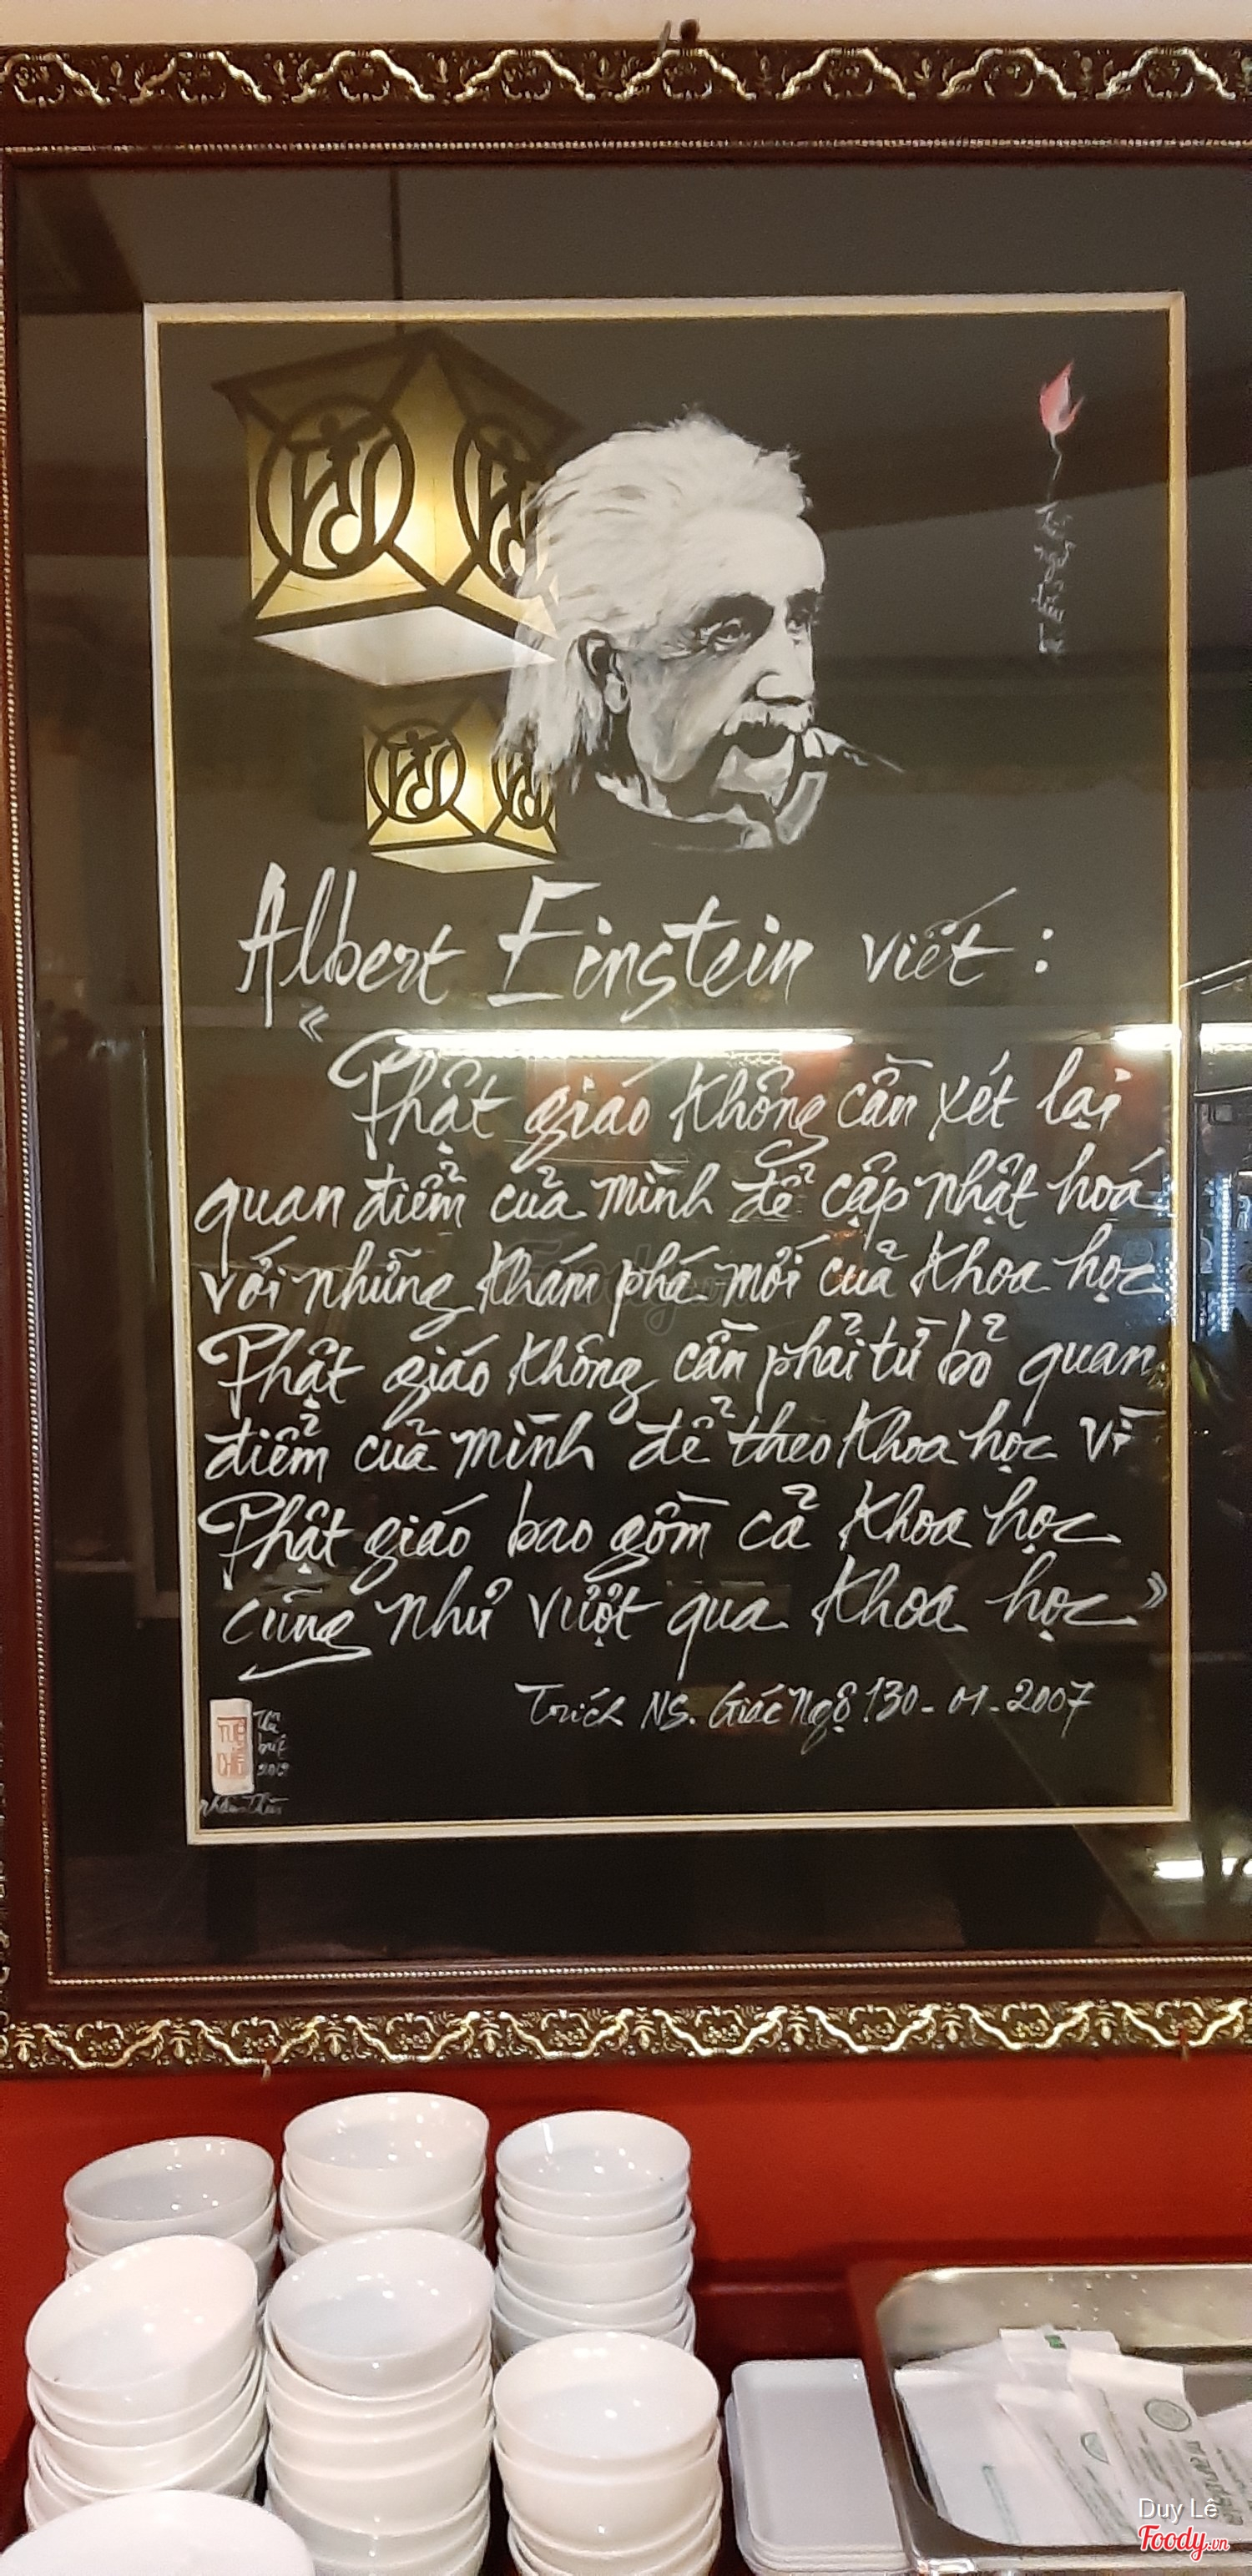 Albert Einstein viết :
« Phật giáo không cần xét lại
quan điểm của mình để cập nhật hoá
với những khám phá mới của khoa học
Phật giáo không cần phải từ bỏ quan
điểm của mình để theo khoa học vì
Phật giáo bao gồm cả khoa học
cũng như vượt qua khoa học »
Trích NS. Giác Ngộ 130-01-2007
TUỆ
Duy Lê
Foody.vn